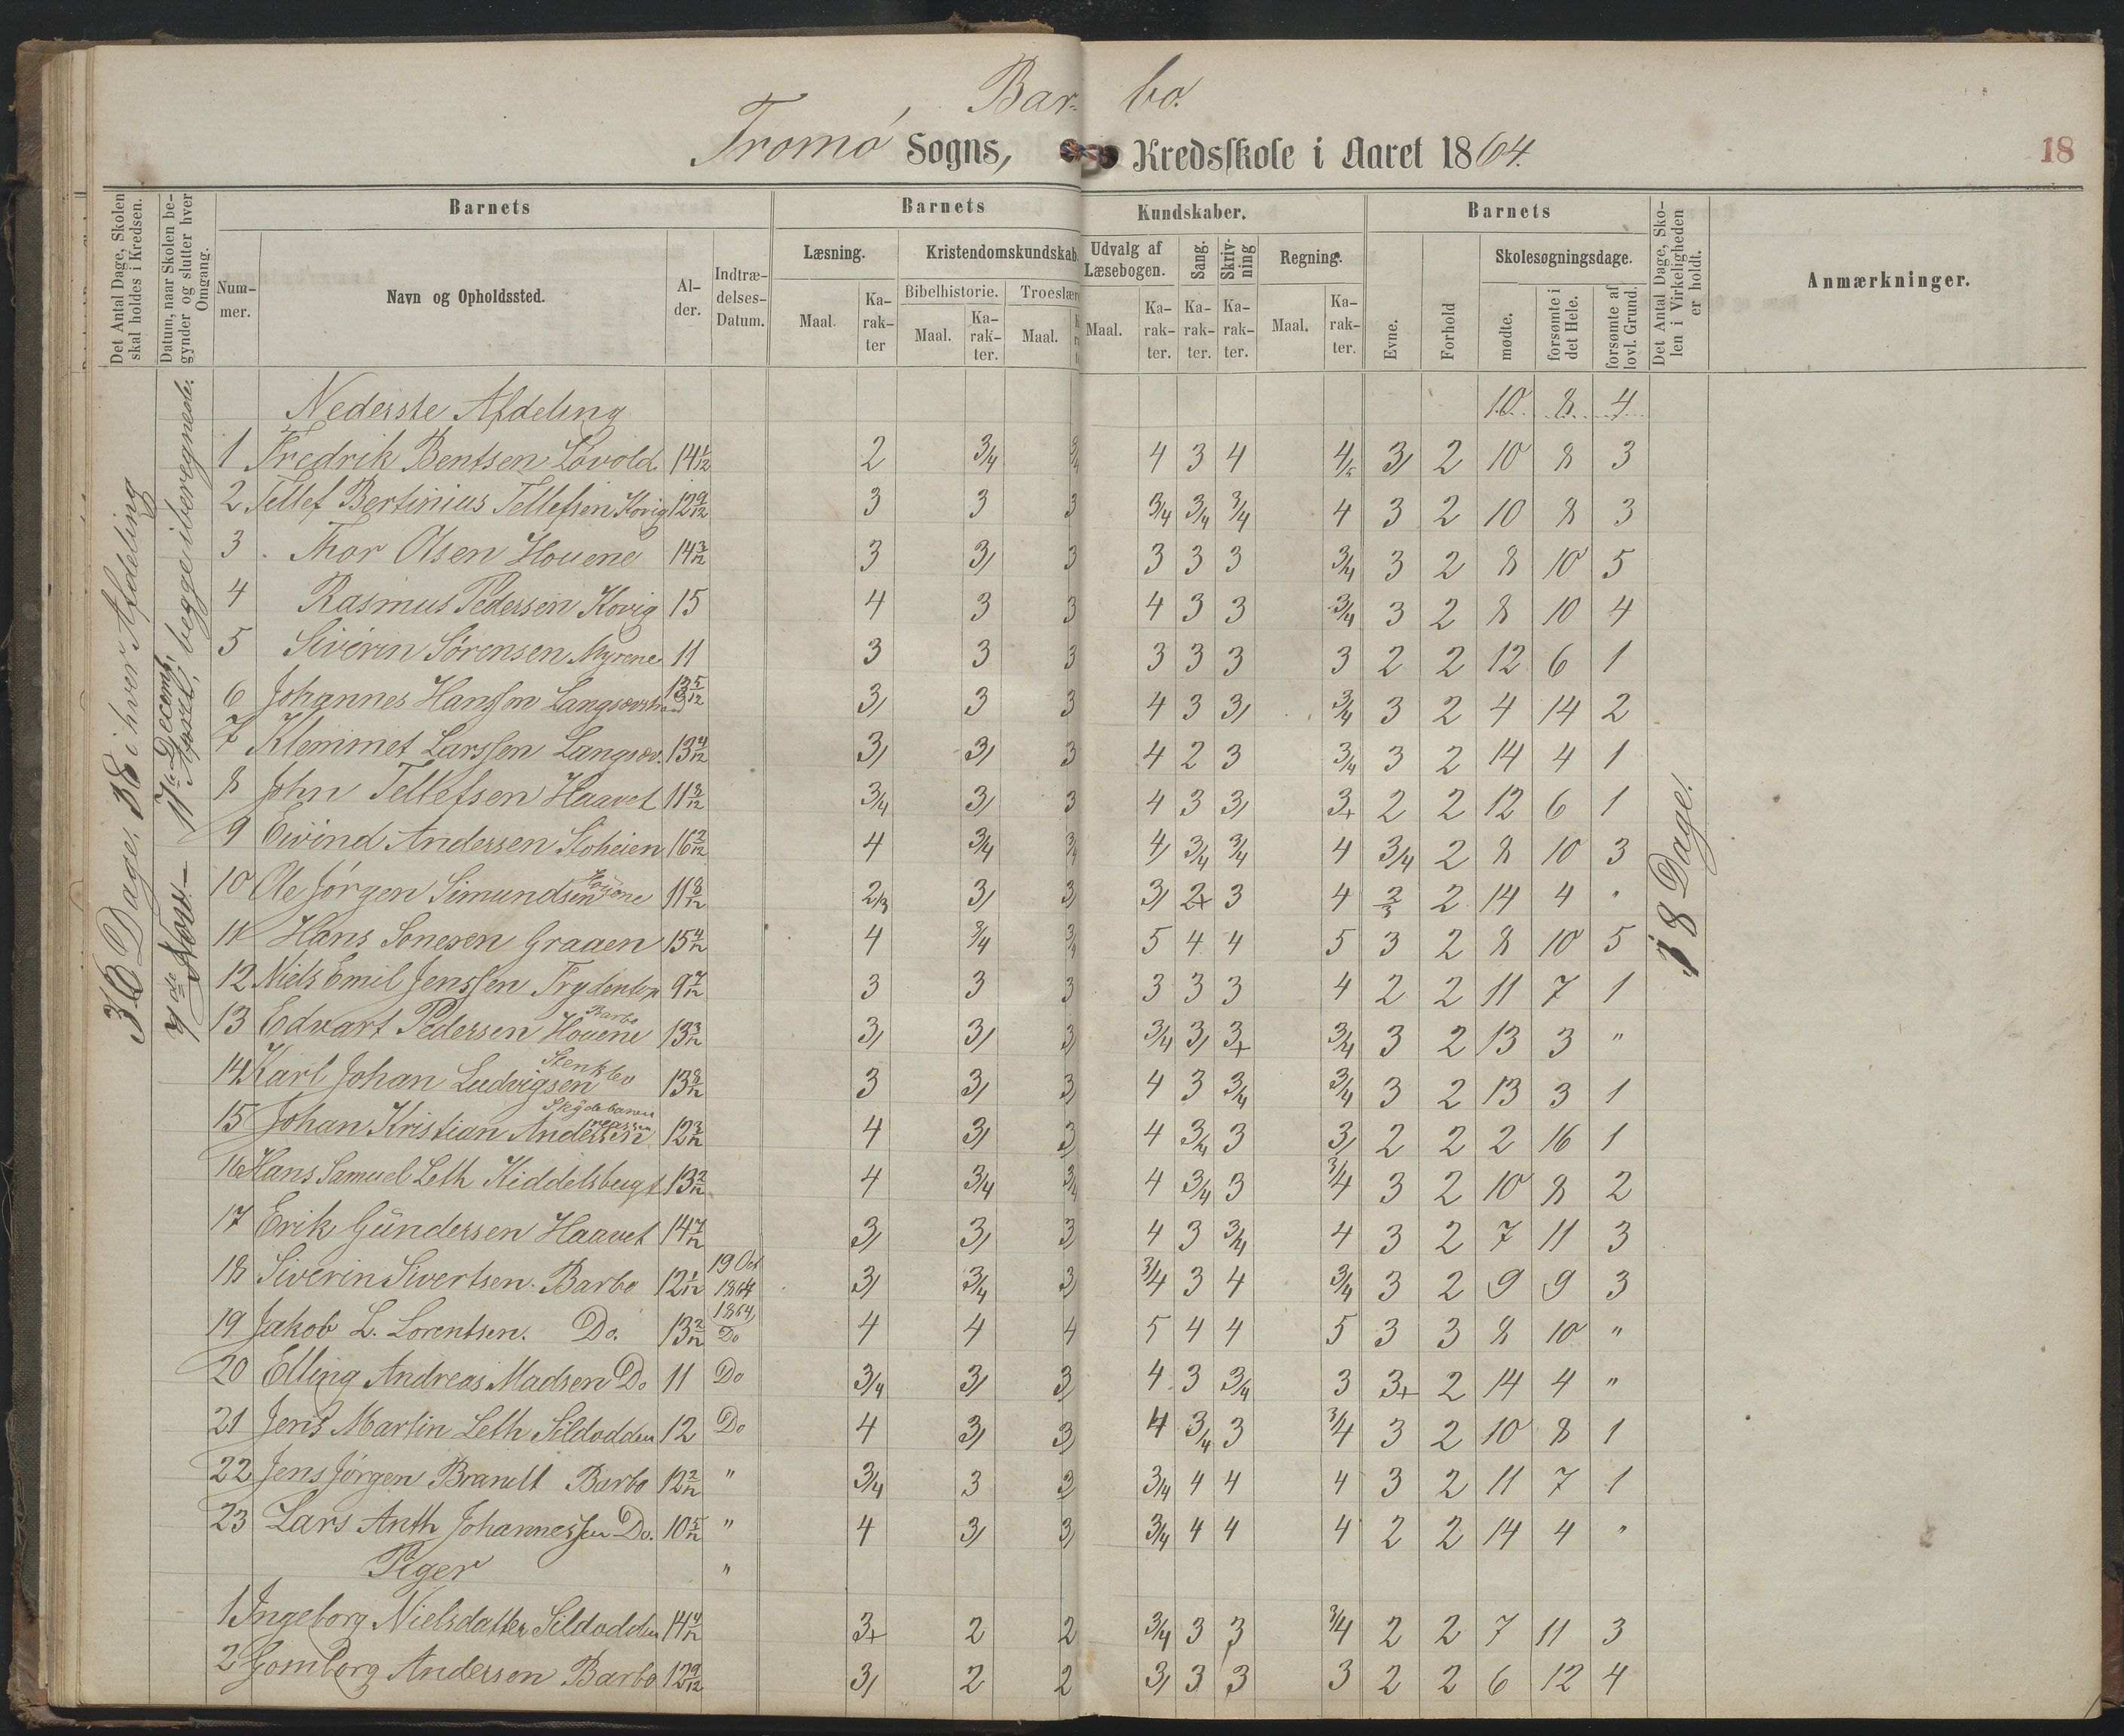 Bar- bo.
Tromø Sogns, Kredsskole i Aaret 1864.
18
Det Antal Dage, Skolen skal holdes i Kredsen.
Datum, naar Skolen begynder og slutter hver Omgang.
Barnets
Barnets
Kundskaber.
Barnets
Det Antal Dage, Skolen i Virkeligheden er holdt.
Anmærkninger.
Nummer.
Navn og Opholdssted.
Alder.
Indtrædelses-Datum.
Læsning.
Kristendomskundskab.
Udvalg af Læsebogen.
Sang.
Skrivning
Regning.
Evne.
Forhold
Skolesøgningsdage.
Bibelhistorie.
Troeslære
Maal.
Karakter
Maal.
Karakter.
Maal.
Maal.
Karakter.
Karakter.
Karakter.
Maal.
Karakter.
mødte.
forsømte i det Hele.
forsømte af lovl. Grund.
36 Dage. 36 i hver Afdeling
7de Novr – 17de Decemb. begge iberegnede.
18 Dage.
Nederste Afdeling 10 8 4
1 Fredrik Bentsen Løvold. 14 1/12 2 3/4 3/4 4 3 4 4/5 3/ 2 10 8 3
2 Tellef Bertinius Tellefsen Kovig 12 9/12 3 3 3 3/4 3/4 3/4 4 3 2 10 8 3
3 Thor Olsen Houene 14 3/12 3 3/ 3 3 3 3 3/4 3 2 8 10 5
4 Rasmus Pedersen Kovig 15 4 3 3 4 3 3 3/4 3 2 8 10 4
5 Siverin Sørensen Myrene 11 3 3 3 3 3 3 3 2 2 12 6 1
6 Johannes Hanssen 13 5/12 3/ 3 3 4 3 3/ 3/4 3 2 4 14 2
7 Klemmet Larssen Langsæv. 13 4/12 3/ 3/ 3 4 2 3 3/4 3 2 14 4 1
8 John Tellefsen Haavet 11 8/12 3/4 3/ 3 4 3 3/ 3+ 2 2 12 6 1
9 Eivind Andersen Stoheien 16 2/12 4 3/4 3/4 4/ 3/4 3/4 4 3/4 2 8 10 3
10 Ole Jørgen Simundsen Houene 11 8/12 2/3 3/ 3/ 3/ 2+ 3 4 2/3 2 14 4 "
11 Hans Sonesen Graaen 15 4/12 4 3/4 3/4 5 4 4 5 3 2 8 10 5
12 Niels Emil Jenssen 9 7/12 3 3 3 3 3 3 4 2 2 11 7 1
13 Edvart Pedersen Houene Barbo 13 3/12 3/ 3/ 3/ 3/4 3/ 3+ 3/4 3 2 13 3 "
14 Karl Johan Ludvigsen Stenklev 13 8/12 3 3/ 3/ 4 3 3/4 3/4 3 2 13 3 1
15 Johan Kristian Andersen Skydebanen 12 3/12 4 3/ 3 4 3/4 3 3/ 2 2 2 16 1
16 Hans Samuel Leth Kiddelsbugt 13 2/12 4 3/4 3/4 4 3/4 3 3/4 3 2 10 8 2
17 Erik Gundersen Haavet 14 7/12 3/ 3/ 3/ 4 3 3/4 4 3 2 7 11 3
18 Siverin Sivertsen. Barbo 12 1/12 19 Oct 1864 3/ 3/4 3/ 3/4 3 4 3/4 3 2 9 9 3
19 Jakob L. Lorentsen. Do. 13 2/12 1864, Do 4 4 4 5 4 4 5 3 3 8 10 "
20 Elling Andreas Madsen Do 11 Do 3/4 3/ 3/ 4 3 3/4 3 3+ 2 14 4 "
21 Jens Martin Leth Sildodden 12 Do 4 3/ 3/ 4 3/4 3 3/4 3 2 10 8 1
22 Jens Jørgen Brandt Barbo 12 2/12 " 3/4 3 3 3/4 4 4 4 3 2 11 7 1
23 Lars Anth Johannessen Do. 10 5/12 " 4 3/ 3/ 3/4 4 4 4 2 2 14 4 "
Piger "
1 Ingeborg Nielsdatter Sildodden 14 4/12 3+ 2 2 3/4 3 3 3/4 2 2 7 11 3
2 Gomborg Andersen Barbo 12 9/12 3/ 2 2 3/ 3 3 3 2 2 6 12 4